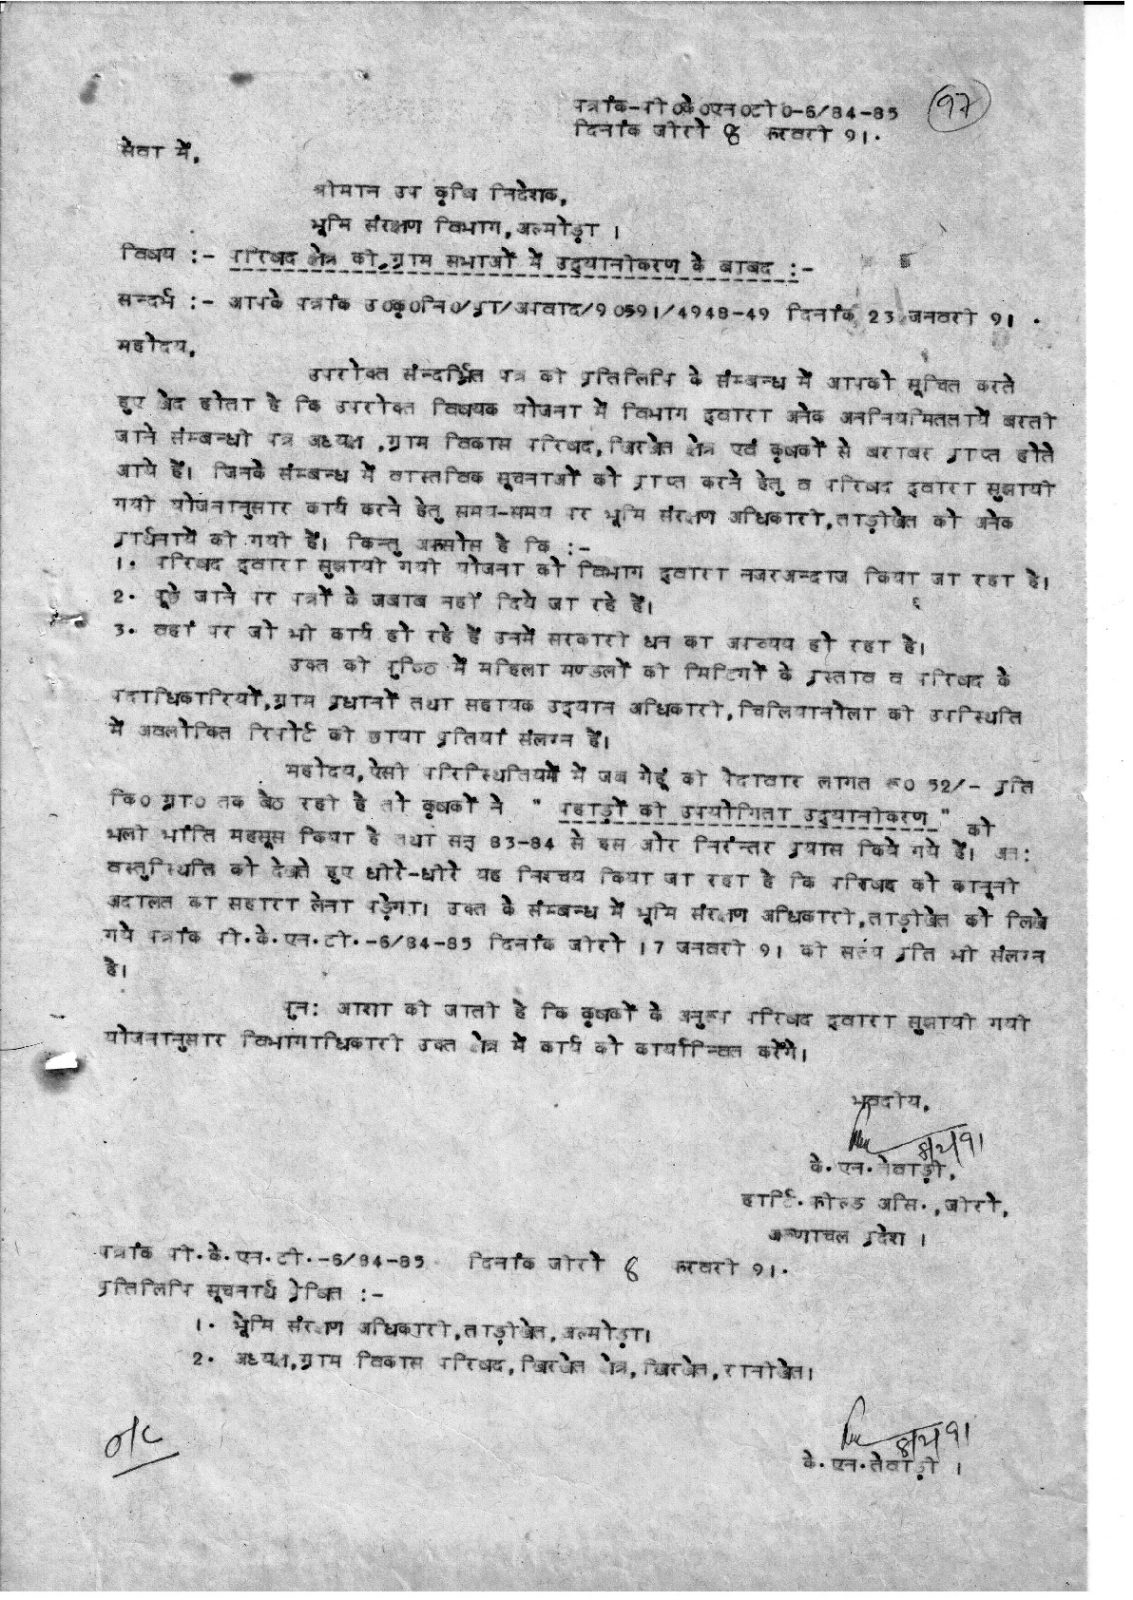 पत्रांक-पी0के0एन0टी0-6/84-85 (97)
दिनांक जीरो 8 फरवरी 91.
सेवा में,
श्रीमान उप कृषि निदेशक,
भूमि संरक्षण विभाग, अल्मोड़ा ।
विषय :- परिषद क्षेत्र की, ग्राम सभाओं में उद्यानीकरण के बाबद :-
सन्दर्भ :- आपके पत्रांक उ0कृ0नि0/प्रा/अपवाद/90591/4948-49 दिनांक 23 जनवरी 91 .
महोदय,
उपरोक्त संन्दर्भित पत्र की प्रतिलिपि के संम्बन्ध में आपको सूचित करते
हुए खेद होता है कि उपरोक्त विषयक योजना में विभाग द्वारा अनेक अननियमिततायें बरती
जाने संम्बन्धी पत्र अध्यक्ष ,ग्राम विकास परिषद, खिरखेत क्षेत्र एवं कृषकों से बराबर प्राप्त होते
आये हैं। जिनके संम्बन्ध में वास्तविक सूचनाओं को प्राप्त करने हेतु व परिषद द्वारा सुझायी
गयी योजनानुसार कार्य करने हेतु समय-समय पर भूमि संरक्षण अधिकारी, ताड़ीखेत को अनेक
प्रार्थनायें की गयी हैं। किन्तु अफसोस है कि :-
1. परिषद द्वारा सुझायी गयी योजना को विभाग द्वारा नजरअन्दाज किया जा रहा है।
2. पूछे जाने पर पत्रों के जबाब नहीं दिये जा रहे हैं।
3. वहां पर जो भी कार्य हो रहे हैं उनमें सरकारी धन का अपव्यय हो रहा है।
उक्त की पुष्ठि में महिला मण्डलों की मिटिगों के प्रस्ताव व परिषद के
पदाधिकारियों, ग्राम प्रधानों तथा सहायक उद्यान अधिकारी, चिलियानौला की उपस्थिति
में अवलोकित रिपोर्ट की छाया प्रतियां संलग्न हैं।
महोदय, ऐसी परिस्थितियों में जब गेहूं की पैदावार लागत रू0 52/- प्रति
कि0 ग्रा0 तक बैठ रही है तो कृषकों ने " पहाड़ों की उपयोगिता उद्यानीकरण " को
भली भांति महसूस किया है तथा सन् 83-84 से इस ओर निरंन्तर प्रयास किये गये हैं। अत:
वस्तुस्थिति को देखते हुए धीरे-धीरे यह निश्चय किया जा रहा है कि परिषद को कानूनी
अदालत का सहारा लेना पड़ेगा। उक्त के संम्बन्ध में भूमि संरक्षण अधिकारी, ताड़ीखेत को लिखे
गये पत्रांक पी.के.एन.टी.-6/84-85 दिनांक जीरो 17 जनवरी 91 की सत्य प्रति भी संलग्न
है।
पुन: आशा की जाती है कि कृषकों के अनुरूप परिषद द्वारा सुझायी गयी
योजनानुसार विभागाधिकारी उक्त क्षेत्र में कार्य को कार्यान्वित करेंगे।
भवदीय,
8/2/91
के.एन.तेवाड़ी,
हार्टि.फील्ड असि.,जीरो,
अरूणाचल प्रदेश ।
पत्रांक पी.के.एन.टी.-6/84-85 दिनांक जीरो 8 फरवरी 91.
प्रतिलिपि सूचनार्थ प्रेषित :-
1. भूमि संरक्षण अधिकारी, ताड़ीखेत, अल्मोड़ा।
2. अध्यक्ष, ग्राम विकास परिषद, खिरखेत क्षेत्र, खिरखेत, रानीखेत।
o/c
8/2/91
के.एन.तेवाड़ी ।